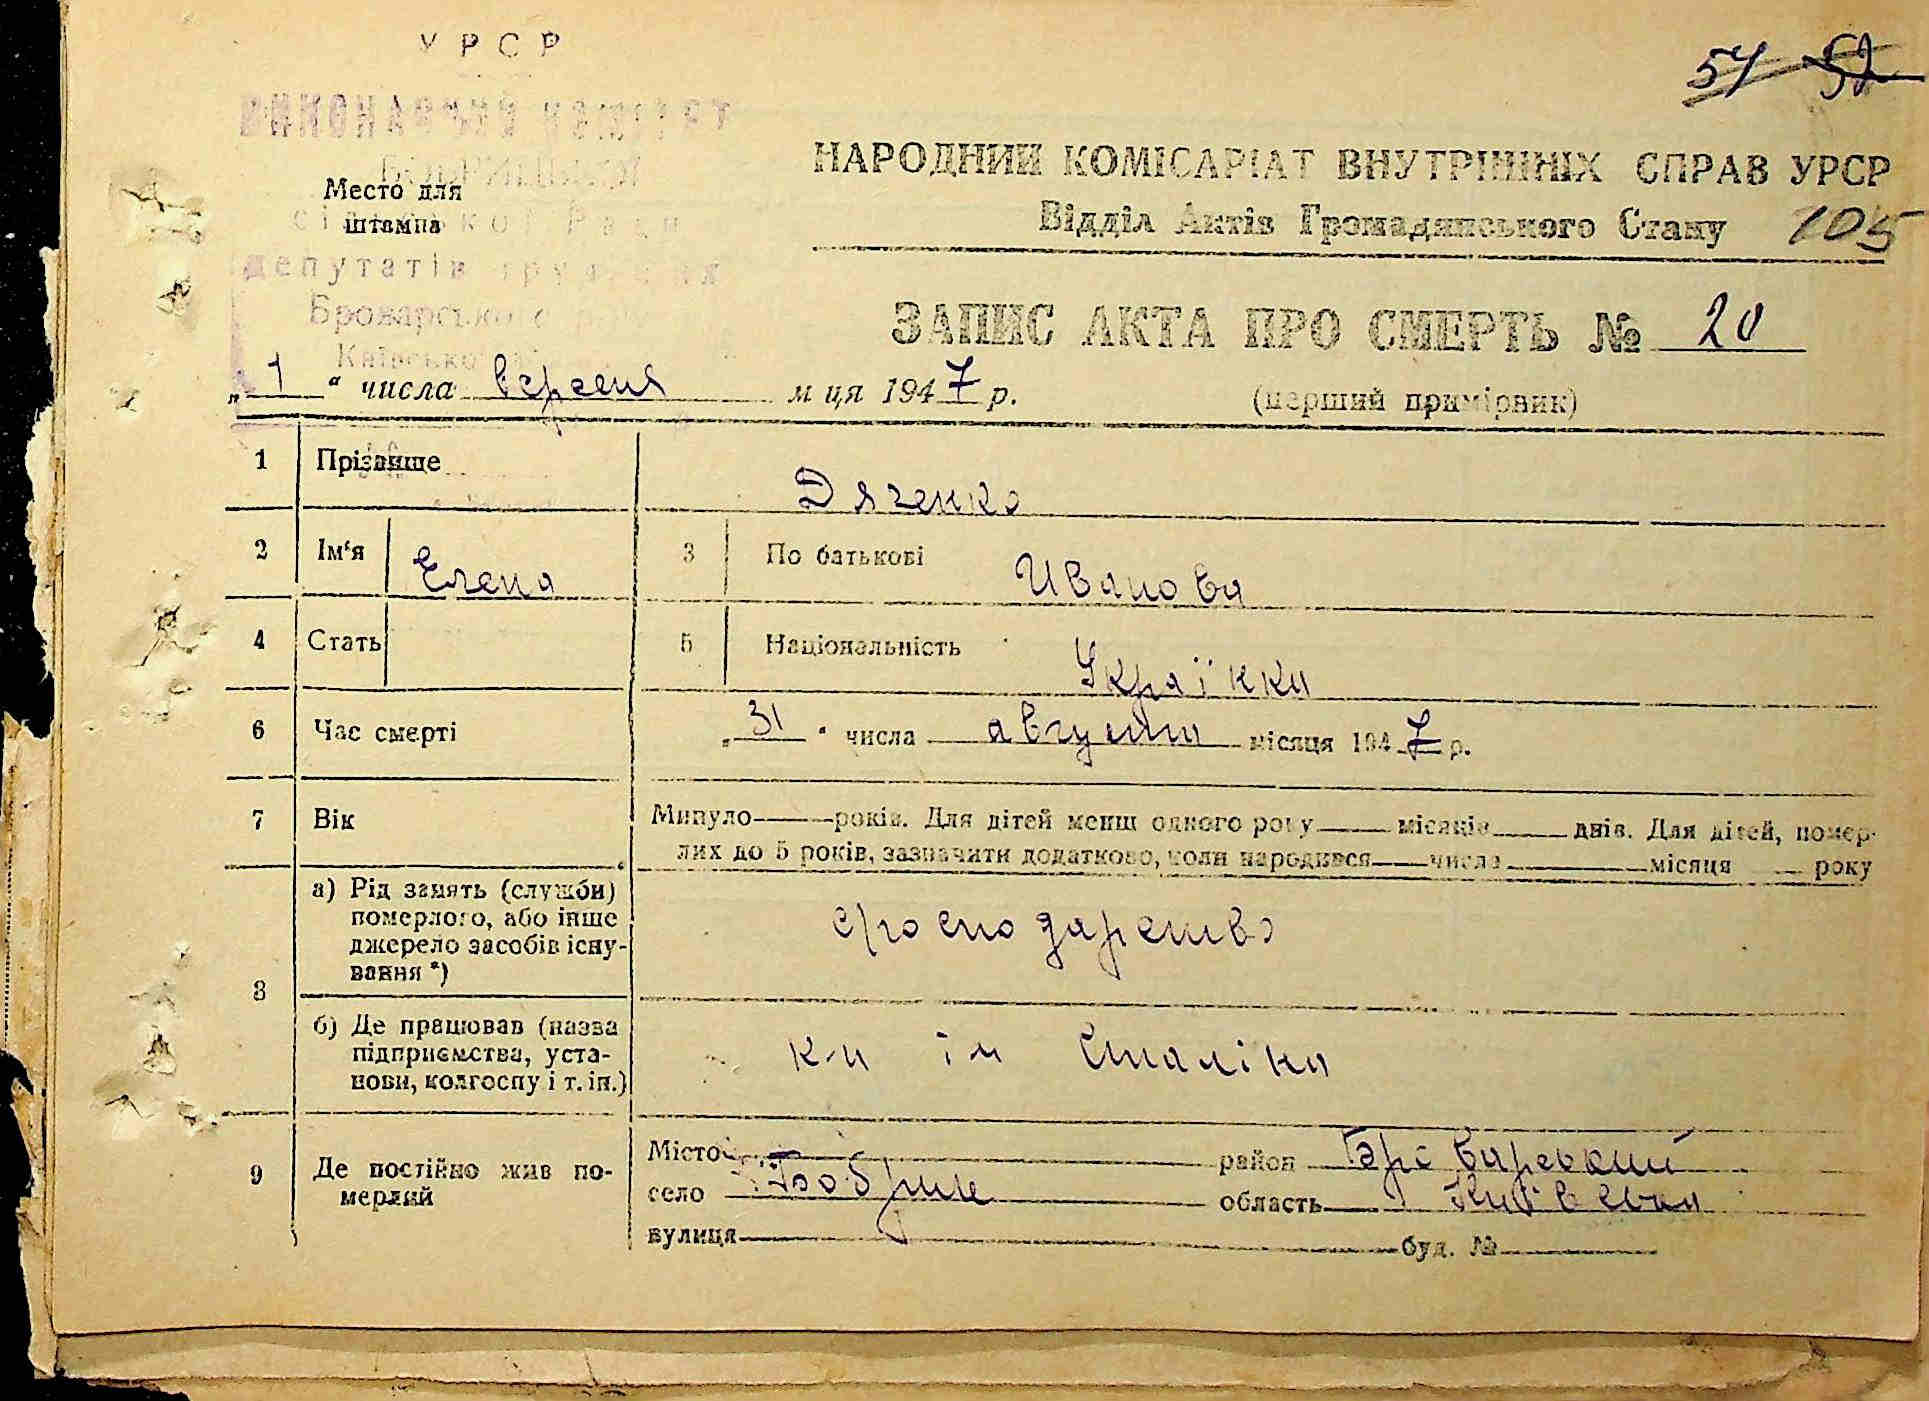 УРСР
ВИКОНАВЧИЙ КОМІТЕТ
Место для
штампа
сільської Ради
депутатів трудящих
Броварського
Київської
57 52
НАРОДНИЙ КОМІСАРІАТ ВНУТРІШНІХ СПРАВ УРСР
Відділ Актів Громадянського Стану 105
ЗАПИС АКТА ПРО СМЕРТЬ № 20
„ 1 “ числа вересня м ця 1947 р. (перший примірник)
1 Прізвище Дяченко
2 Ім‘я Елена 3 По батькові Иванова
4 Стать 5 Національність Українки
6 Час смерті „ 31 “ числа августа місяця 1947 р.
7 Вік Минуло — років. Для дітей менш одного року — місяців — днів. Для дітей, помер-
лих до 5 років, зазначити додатково, коли народився — числа — місяця — року
8 а) Рід занять (служби)
померлого, або інше
джерело засобів існу-
вання *)
господарство
б) Де працював (назва
підприємства, уста-
нови, колгоспу і т. ін.)
к-п ім Сталіна
9 Де постійно жив по-
мерлий
Місто район Броварський
село Бобрик область Київська
вулиця буд. №